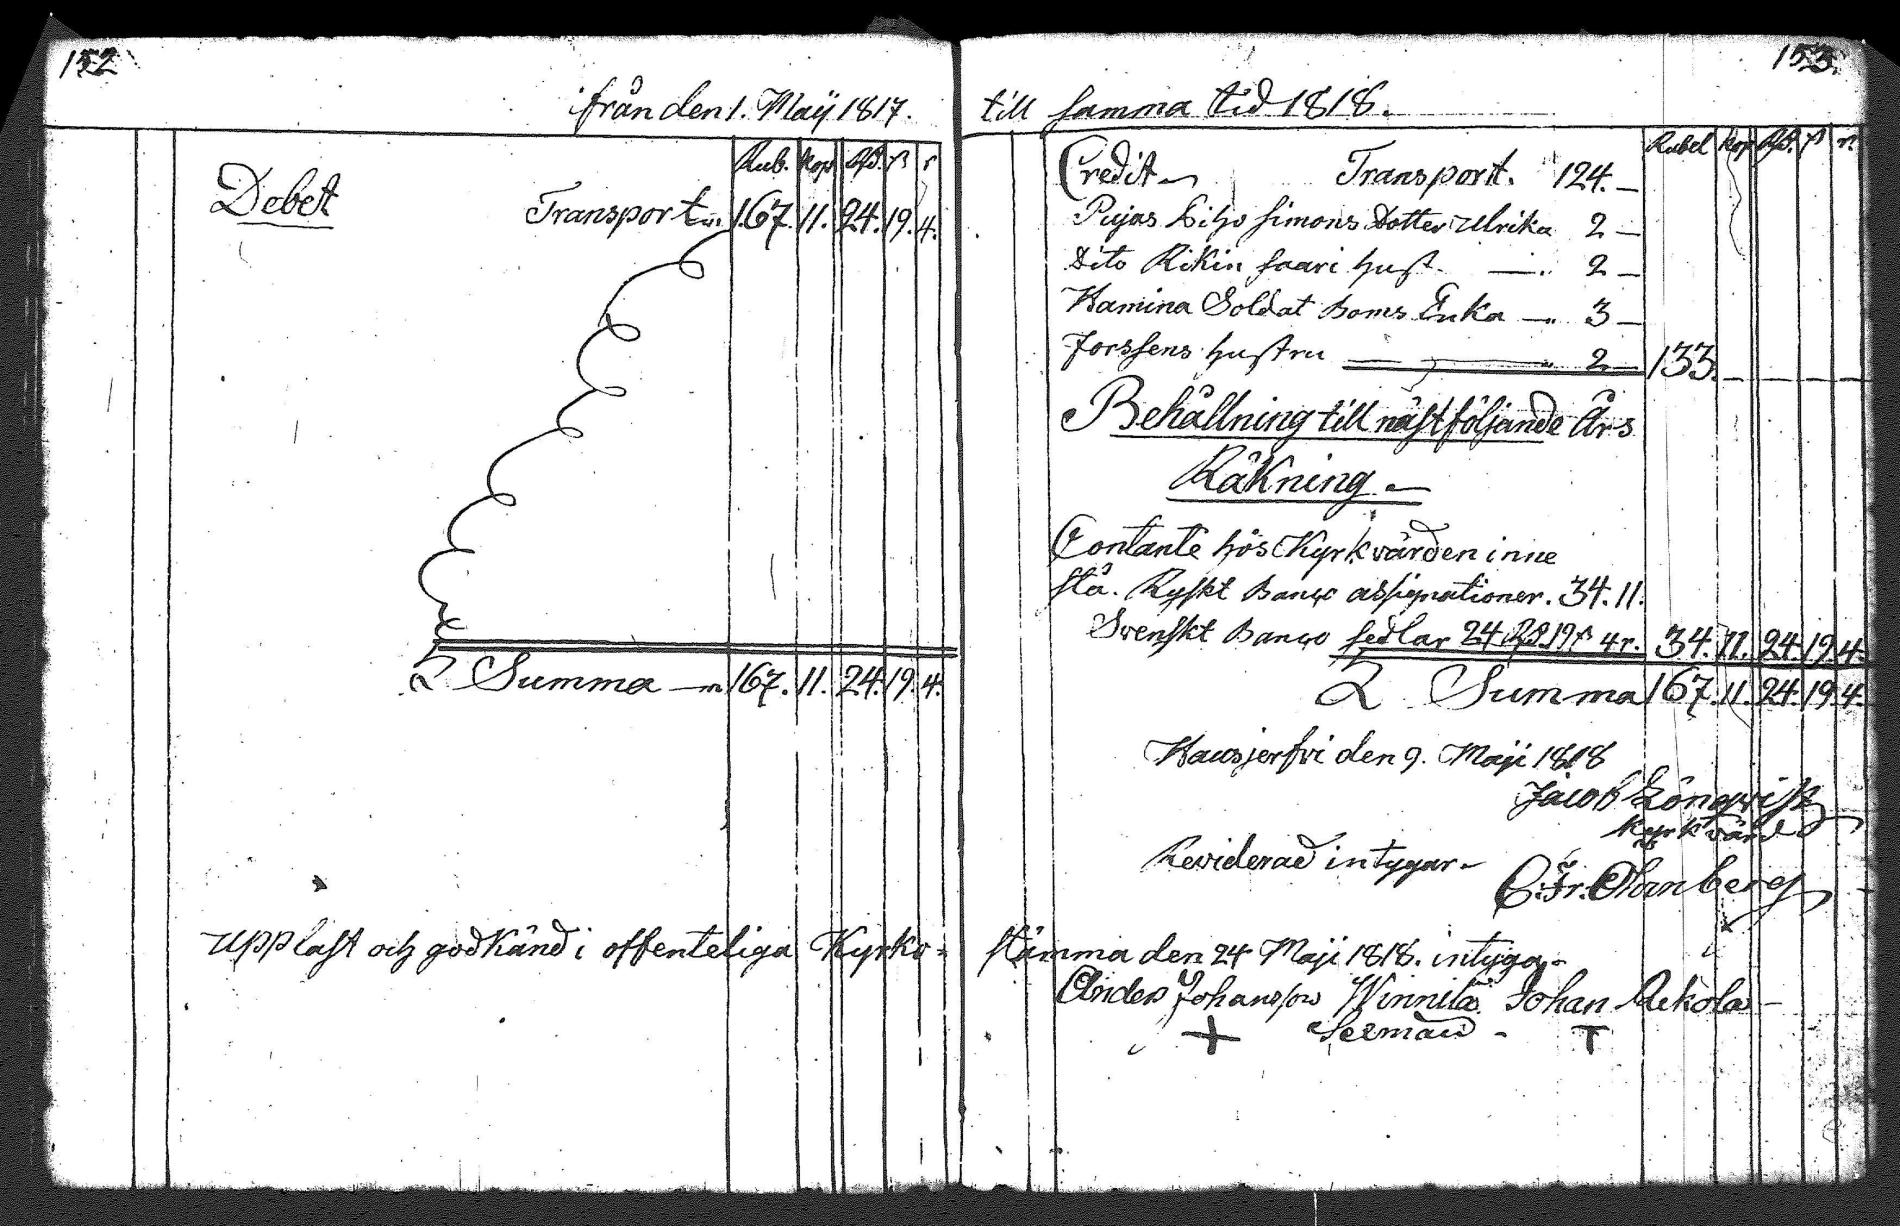 152
ifrån den 1. Maÿ 1817.
Rub. Kop. Rd. ß r
Debet
Transport 167. 11. 24. 19. 4.
Summa 167. 11. 24. 19. 4.
Upplast och godkänd i offenteliga Kyrko-
153.
till samma tid 1818.
Rubel Kop Rd. ß r.
Credit Transport. 124. —
Pujas Simons Dotter Ulrika 2 —
Dito Rikin saari hust. — 2 —
Hamina Soldat Boms Enka — 3 —
Forssens hustru — 2 — 133. —
Behållning till nästföljande Års
Räkning —
Contante hos Kyrkvärden inne
stå. Ryskt Banco assignationer. 34. 11.
Svenskt Banco sedlar 24 Rd. 19 ß 4 r. 34. 11. 24. 19. 4.
Summa 167. 11. 24. 19. 4.
Hausjerfvi den 9. Maji 1818
Jacob Löngqvist
Kyrkvärd
Reviderad intygar —
C. Fr. Ohanberg
stämma den 24 Maji 1818. intyga —
Anders Johansson Winnila Johan Rekola —